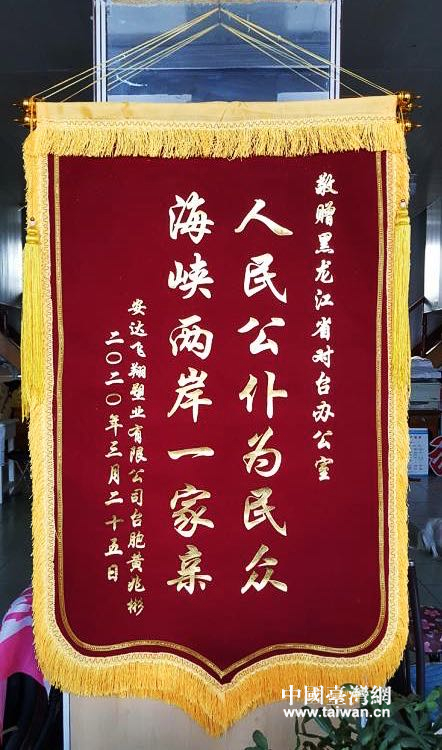 敬赠黑龙江省对台办公室
人民公仆为民众
海峡两岸一家亲
安达飞翔塑业有限公司台胞黄兆彬
二〇二〇年三月二十五日
中國臺灣網
www.taiwan.cn